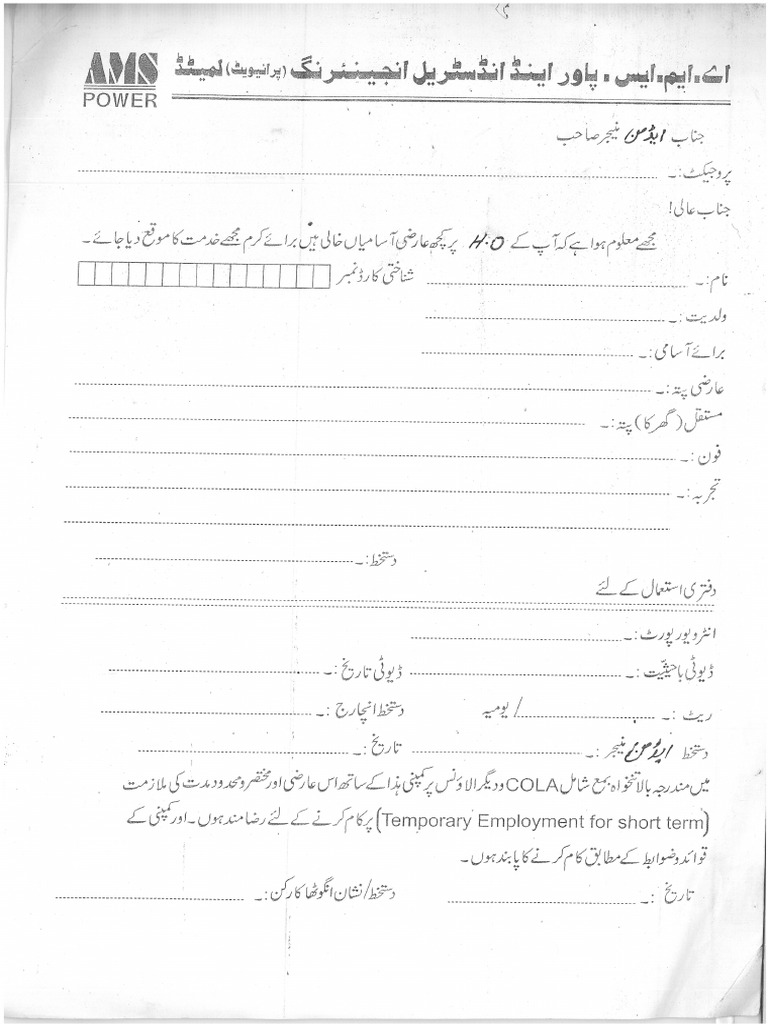 AMS
POWER
اے.ایم.ایس . پاور اینڈ انڈسٹریل انجینئرنگ (پرائیویٹ) لمیٹڈ
جناب ایڈمن منیجر صاحب
پروجیکٹ:۔
جناب عالی!
مجھے معلوم ہوا ہے کہ آپ کے H.O پر کچھ عارضی آسامیاں خالی ہیں برائے کرم مجھے خدمت کا موقع دیا جائے۔
نام:۔ شناختی کارڈ نمبر
ولدیت:۔
برائے آسامی:۔
عارضی پتہ:۔
مستقل (گھر کا) پتہ:۔
فون:۔
تجربہ:۔
دستخط:۔
دفتری استعمال کے لئے
انٹرویو رپورٹ:۔
ڈیوٹی باحیثیت:۔ ڈیوٹی تاریخ:۔
ریٹ:۔ / یومیہ دستخط انچارج:۔
دستخط ایڈمن منیجر:۔ تاریخ:۔
میں مندرجہ بالا تنخواہ بمع شامل COLA و دیگر الاؤنس پر کمپنی ہذا کے ساتھ اس عارضی اور مختصر و محدود مدت کی ملازمت
(Temporary Employment for short term) پر کام کرنے کے لئے رضا مند ہوں۔ اور کمپنی کے
قوائد و ضوابط کے مطابق کام کرنے کا پابند ہوں۔
تاریخ:۔ دستخط/نشان انگوٹھا کارکن:۔